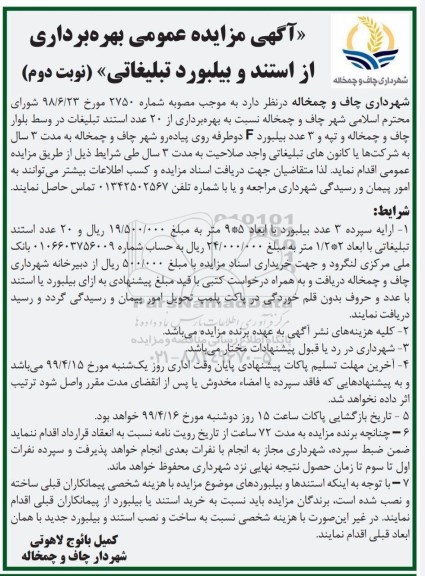 «آگهی مزایده عمومی بهره‌برداری
از استند و بیلبورد تبلیغاتی» (نوبت دوم)
شهرداری چاف و چمخاله
شهرداری چاف و چمخاله درنظر دارد به موجب مصوبه شماره ۲۷۵۰ مورخ ۹۸/۶/۲۳ شورای
محترم اسلامی شهر چاف و چمخاله نسبت به بهره‌برداری از ۲۰ عدد استند تبلیغات در وسط بلوار
چاف و چمخاله و تپه و ۳ عدد بیلبورد F دوطرفه روی پیاده‌رو شهر چاف و چمخاله به مدت ۳ سال
به شرکت‌ها یا کانون های تبلیغاتی واجد صلاحیت به مدت ۳ سال طی شرایط ذیل از طریق مزایده
عمومی اقدام نماید. لذا متقاضیان جهت دریافت اسناد مزایده و کسب اطلاعات بیشتر می‌توانند به
امور پیمان و رسیدگی شهرداری مراجعه و یا با شماره تلفن ۰۱۳۴۲۵۰۲۵۶۷ تماس حاصل نمایند.
شرایط:
۱- ارایه سپرده ۳ عدد بیلبورد با ابعاد ۵*۹ متر به مبلغ ۱۹/۵۰۰/۰۰۰ ریال و ۲۰ عدد استند
تبلیغاتی با ابعاد ۲*۱/۲ متر به مبلغ ۲۴/۰۰۰/۰۰۰ ریال به حساب شماره ۰۱۰۶۶۰۳۷۵۶۰۰۹ بانک
ملی مرکزی لنگرود و جهت خریداری اسناد مزایده با مبلغ ۵۰۰/۰۰۰ ریال از دبیرخانه شهرداری
چاف و چمخاله دریافت و به همراه درخواست کتبی با قید مبلغ پیشنهادی به ازای بیلبورد یا استند
با عدد و حروف بدون قلم خوردگی در پاکت پلمپ تحویل امور پیمان و رسیدگی گردد و رسید
دریافت نمایند.
۲- کلیه هزینه‌های نشر آگهی به عهده برنده مزایده می‌باشد.
۳- شهرداری در رد یا قبول پیشنهادات مختار می‌باشد.
۴- آخرین مهلت تسلیم پاکات پیشنهادی پایان وقت اداری روز یک‌شنبه مورخ ۹۹/۴/۱۵ می‌باشد
و به پیشنهادهایی که فاقد سپرده یا امضاء مخدوش یا پس از انقضای مدت مقرر واصل شود ترتیب
اثر داده نخواهد شد.
۵ - تاریخ بازگشایی پاکات ساعت ۱۵ روز دوشنبه مورخ ۹۹/۴/۱۶ خواهد بود.
۶ – چنانچه برنده مزایده به مدت ۷۲ ساعت از تاریخ رویت نامه نسبت به انعقاد قرارداد اقدام ننماید
ضمن ضبط سپرده، شهرداری مجاز به انجام با نفرات بعدی انجام خواهد پذیرفت و سپرده نفرات
اول تا سوم تا زمان حصول نتیجه نهایی نزد شهرداری محفوظ خواهد ماند.
۷ – با توجه به اینکه استندها و بیلبوردهای موضوع مزایده با هزینه شخصی پیمانکاران قبلی ساخته
و نصب شده است، برندگان مزایده باید نسبت به خرید استند یا بیلبورد از پیمانکاران قبلی اقدام
نمایند. در غیر این‌صورت با هزینه شخصی نسبت به ساخت و نصب استند و بیلبورد جدید با همان
ابعاد قبلی اقدام نمایند.
کمیل بائوج لاهوتی
شهردار چاف و چمخاله